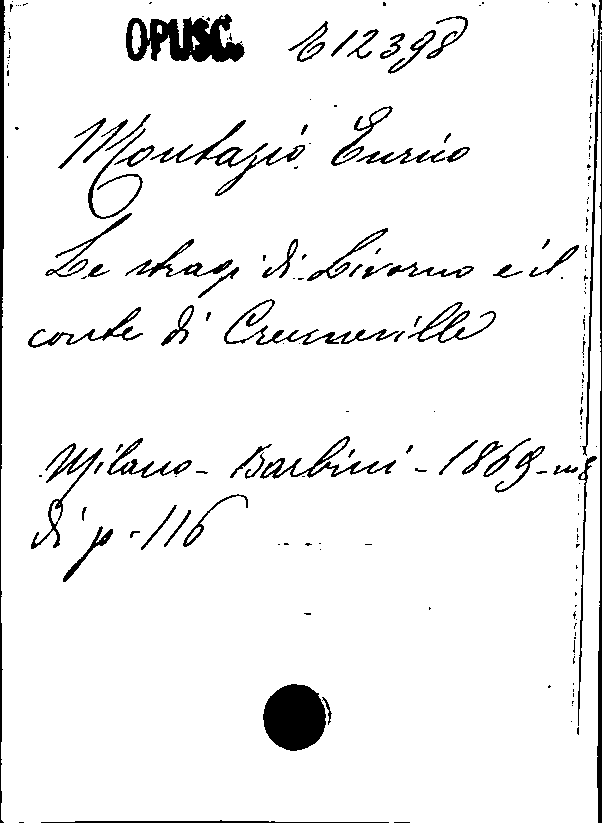 OPUSC. E 12398
Montazio Enrico
Le stragi di Livorno e il
conte di Crenneville
Milano - Barbini - 1869 - in 8
di p - 116